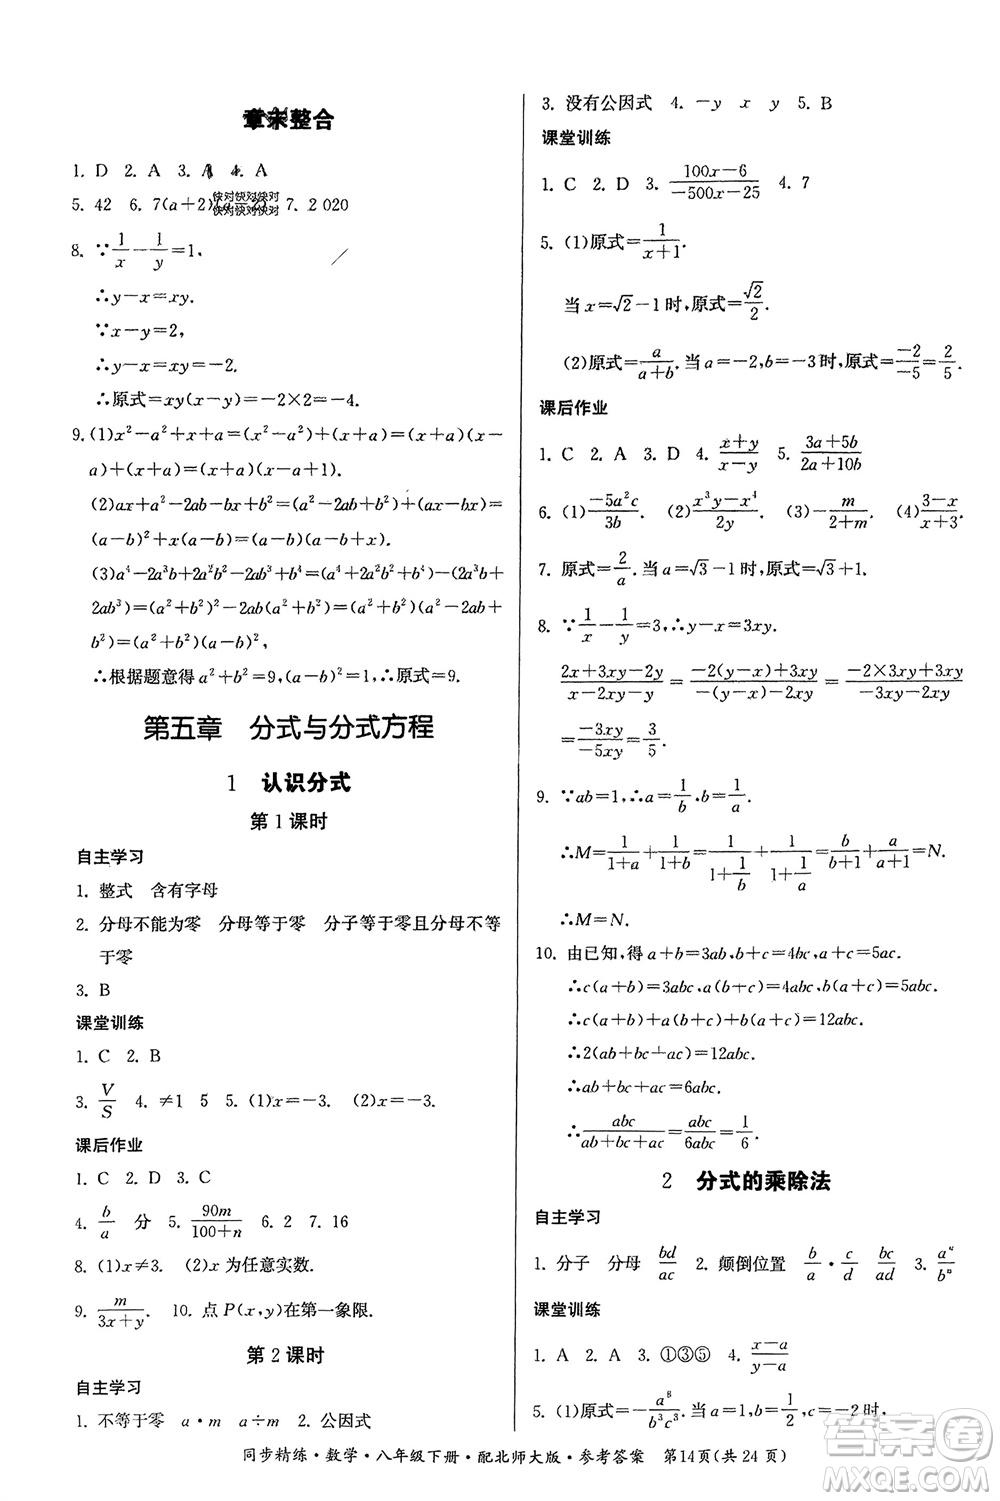 章末整合
1. D 2. A 3. A 4. A
5. 42 6. 7(a+2)(a-2) 7. 2 020
8. ∵1/x-1/y=1,
∴y-x=xy.
∵x-y=2,
∴y-x=xy=-2.
∴原式=xy(x-y)=-2×2=-4.
9. (1)x²-a²+x+a=(x²-a²)+(x+a)=(x+a)(x-
a)+(x+a)=(x+a)(x-a+1).
(2)ax+a²-2ab-bx+b²=(a²-2ab+b²)+(ax-bx)=
(a-b)²+x(a-b)=(a-b)(a-b+x).
(3)a⁴-2a³b+2a²b²-2ab³+b⁴=a⁴+2a²b²+b⁴-(2a³b+
2ab³)=(a²+b²)²-2ab(a²+b²)=(a²+b²)(a²-2ab+
b²)=(a²+b²)(a-b)²,
∴根据题意得a²+b²=9,(a-b)²=1,∴原式=9.
第五章 分式与分式方程
1 认识分式
第1课时
自主学习
1. 整式 含有字母
2. 分母不能为零 分母等于零 分子等于零且分母不等
于零
3. B
课堂训练
1. C 2. B
3. V/S 4. ≠1 5 5. (1)x=-3. (2)x=-3.
课后作业
1. C 2. D 3. C
4. b/a 分 5. 90m/(100+n) 6. 2 7. 16
8. (1)x≠3. (2)x为任意实数.
9. m/(3x+y). 10. 点P(x,y)在第一象限.
第2课时
自主学习
1. 不等于零 a·m a÷m 2. 公因式
3. 没有公因式 4. -y x y 5. B
课堂训练
1. C 2. D 3. (100x-6)/(-500x-25) 4. 7
5. (1)原式=1/(x+1).
当x=√2-1时,原式=√2/2.
(2)原式=a/(a+b). 当a=-2,b=-3时,原式=-2/-5=2/5.
课后作业
1. C 2. A 3. D 4. (x+y)/(x-y) 5. (3a+5b)/(2a+10b)
6. (1)-5a²c/3b. (2)(x³y-x⁴)/2y. (3)-m/(2+m). (4)(3-x)/(x+3).
7. 原式=2/a. 当a=√3-1时,原式=√3+1.
8. ∵1/x-1/y=3,∴y-x=3xy.
(2x+3xy-2y)/(x-2xy-y)=(-2(y-x)+3xy)/(-(y-x)-2xy)=(-2×3xy+3xy)/(-3xy-2xy)
=-3xy/-5xy=3/5.
9. ∵ab=1,∴a=1/b,b=1/a.
∴M=1/(1+a)+1/(1+b)=1/(1+1/b)+1/(1+1/a)=b/(b+1)+a/(a+1)=N.
∴M=N.
10. 由已知,得a+b=3ab,b+c=4bc,a+c=5ac.
∴c(a+b)=3abc,a(b+c)=4abc,b(a+c)=5abc.
∴c(a+b)+a(b+c)+b(a+c)=12abc.
∴2(ab+bc+ac)=12abc.
∴ab+bc+ac=6abc.
∴abc/(ab+bc+ac)=abc/6abc=1/6.
2 分式的乘除法
自主学习
1. 分子 分母 bd/ac 2. 颠倒位置 b/a·c/d bc/ad 3. aⁿ/bⁿ
课堂训练
1. A 2. A 3. ①③⑤ 4. (x-a)/(y-a)
5. (1)原式=-a⁸/b³c³. 当a=-1,b=1/2,c=-1/2时,
同步精练·数学·八年级下册·配北师大版·参考答案 第14页(共24页)